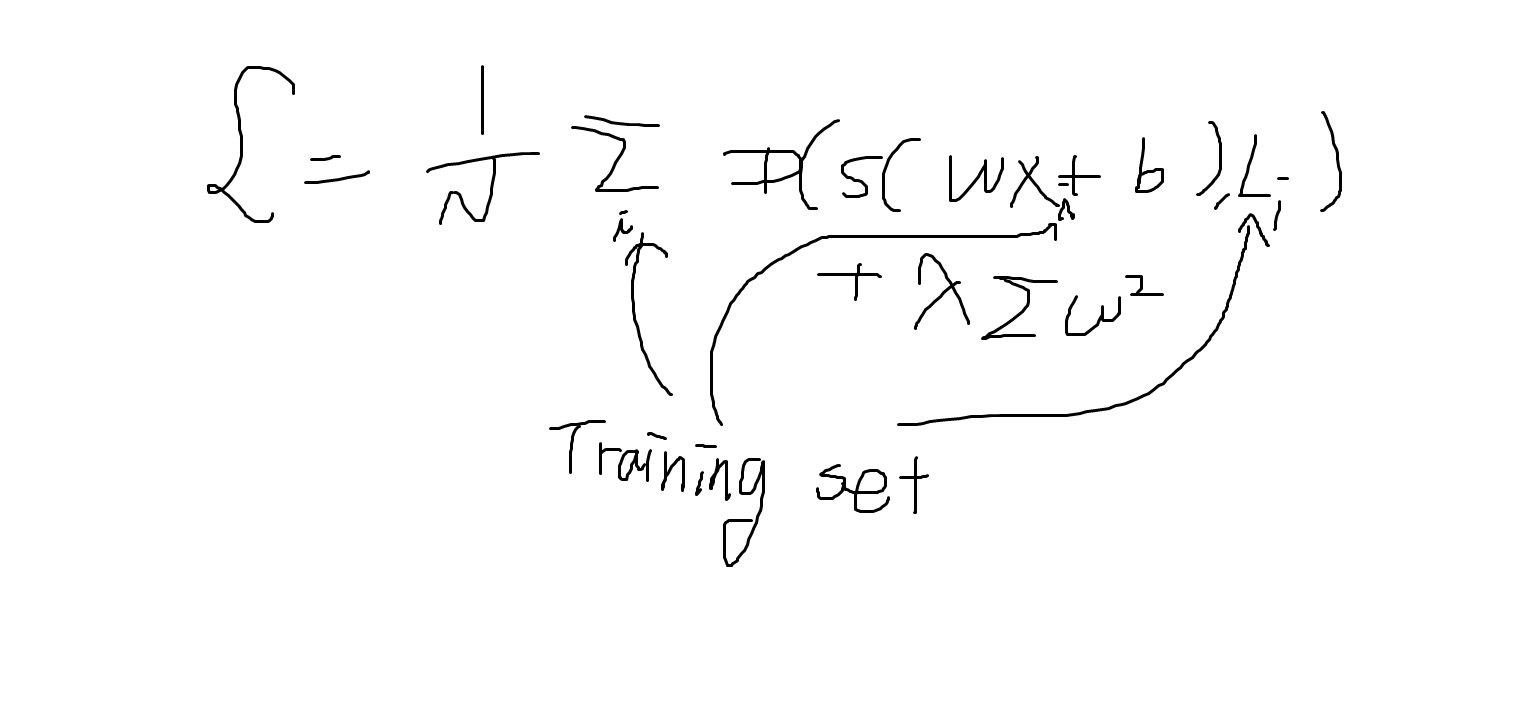 ℒ = 1/N Σᵢ D(S(wxᵢ + b), Lᵢ)
+ λ Σ w²
Training set